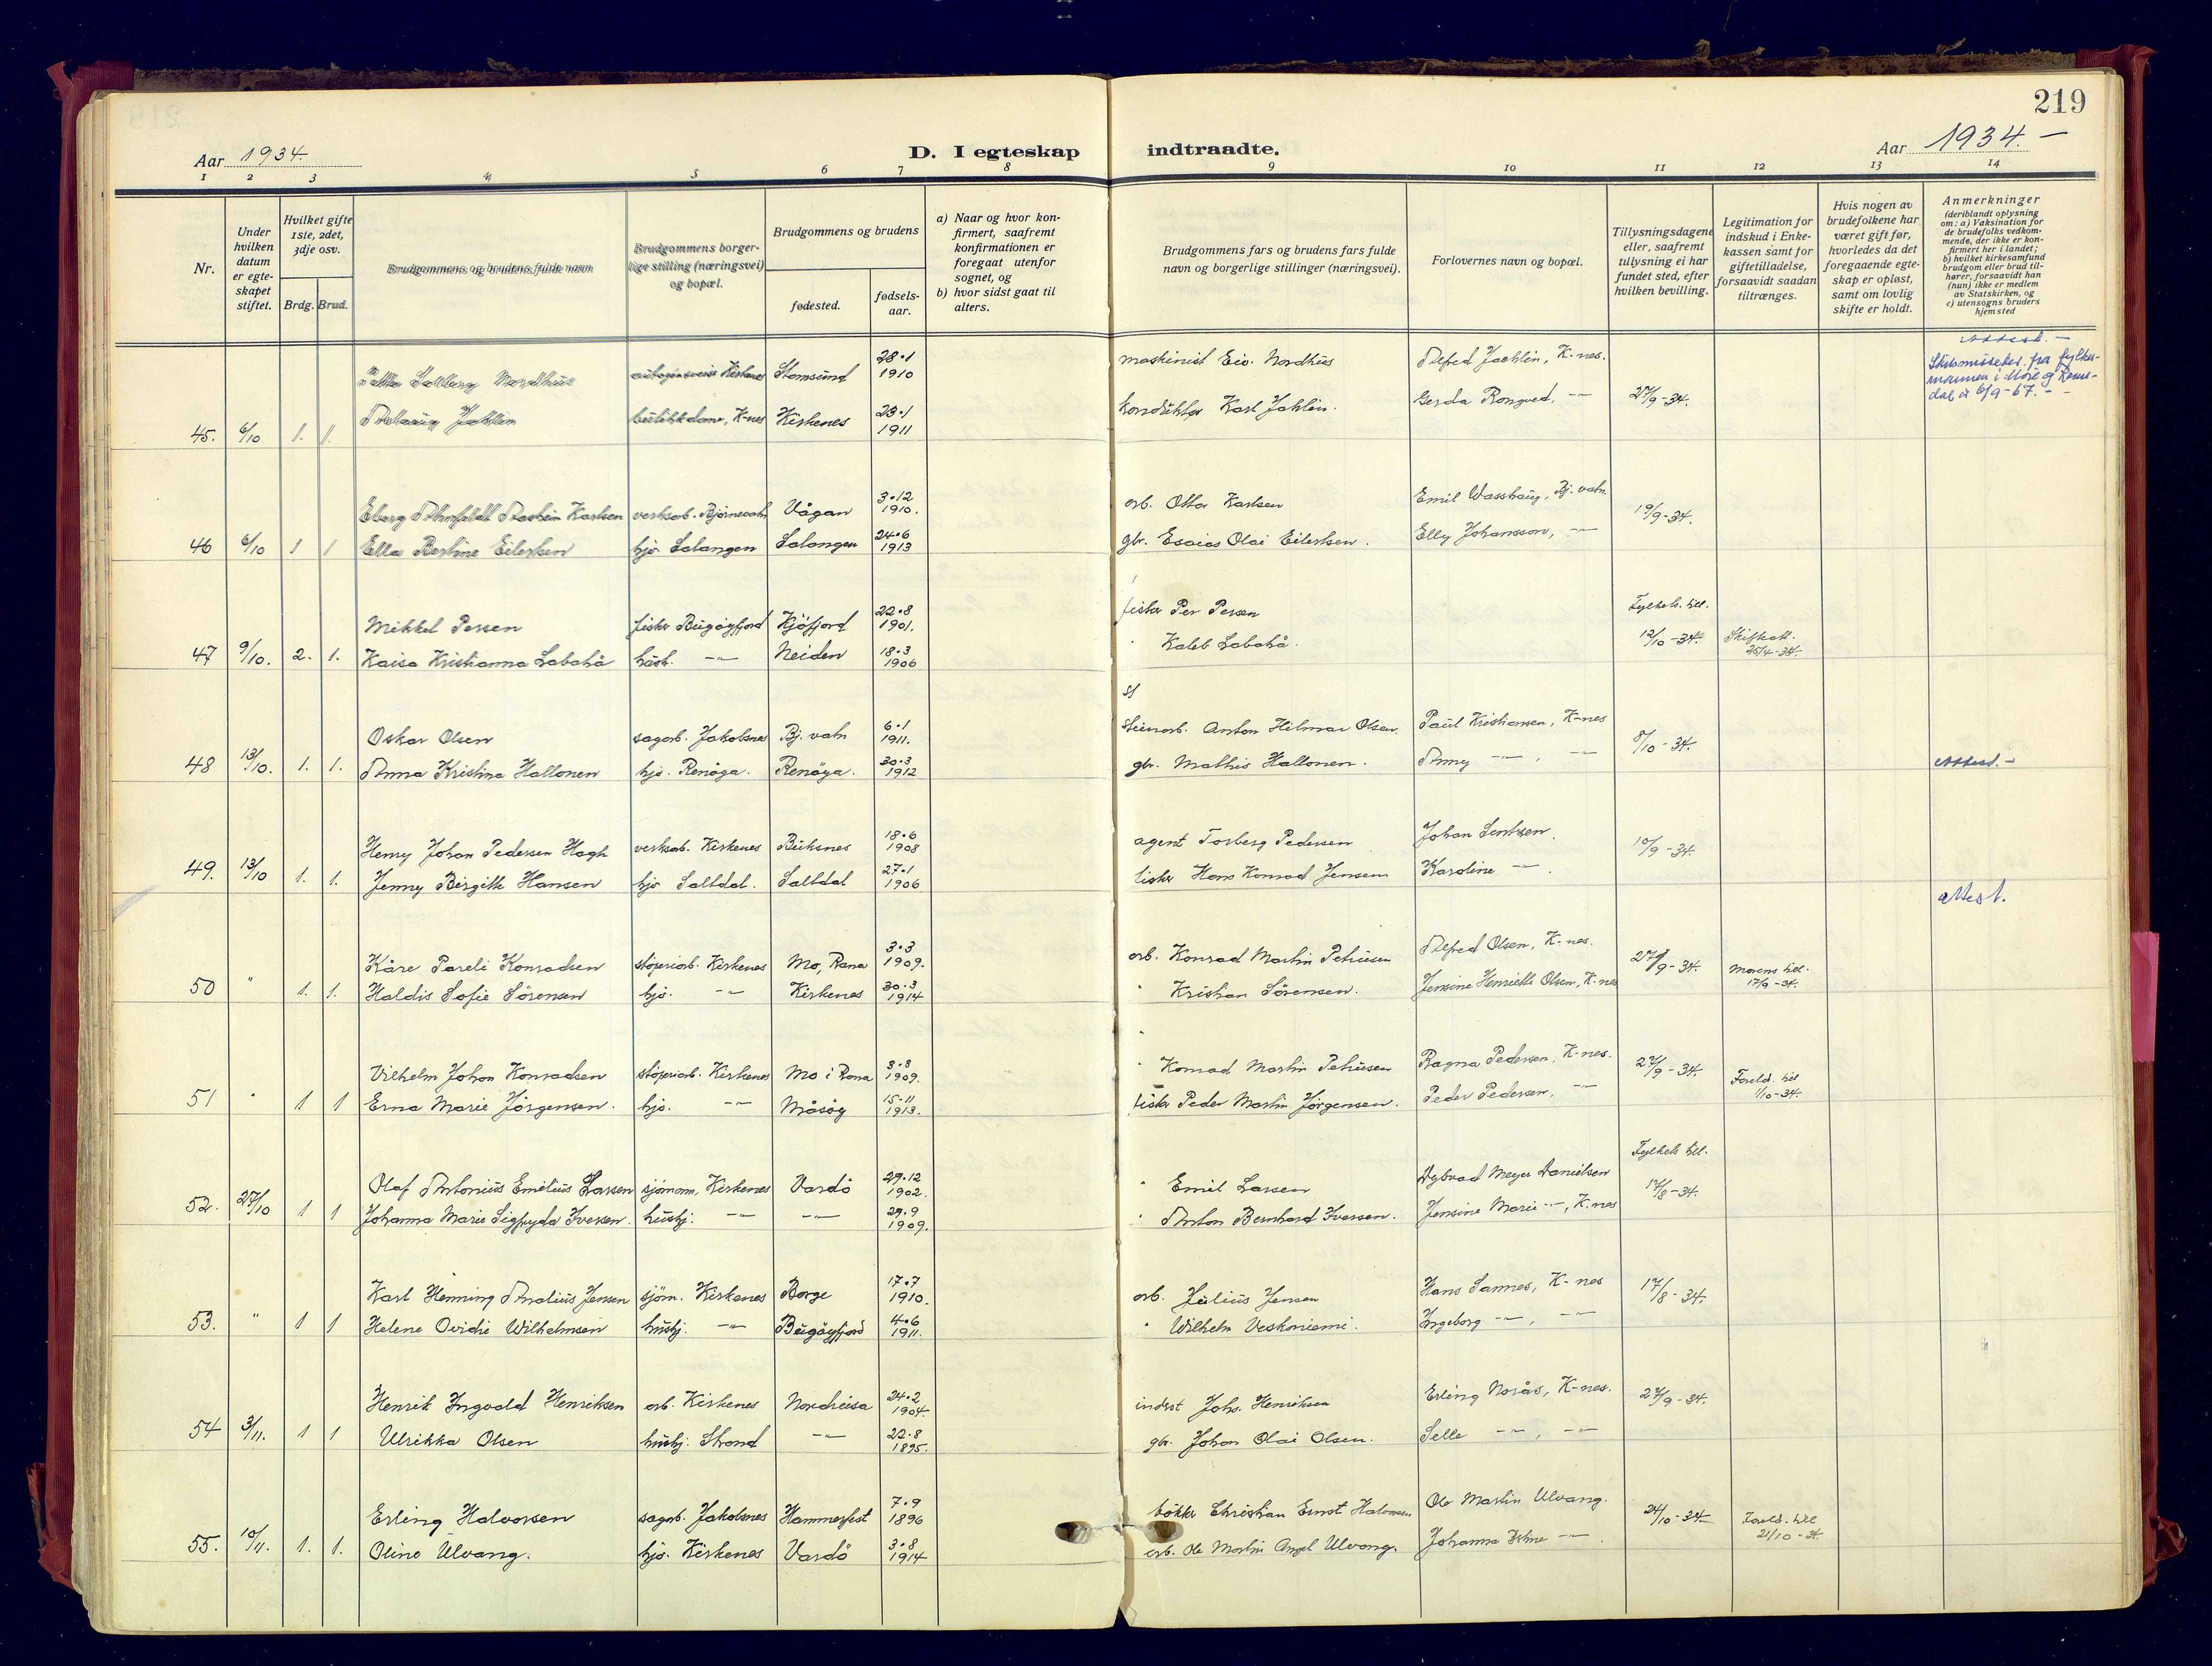 219
Aar 1934.
D. I egteskap indtraadte.
Aar 1934.-
1 2 3 4 5 6 7 8 9 10 11 12 13 14
Nr.
Under hvilken datum er egteskapet stiftet.
Hvilket gifte 1ste, 2det, 3dje osv.
Brdg. Brud.
Brudgommens og brudens fulde navn
Brudgommens borgerlige stilling (næringsvei) og bopæl.
Brudgommens og brudens
fødested.
fødselsaar.
a) Naar og hvor konfirmert, saafremt konfirmationen er foregaat utenfor sognet, og
b) hvor sidst gaat til alters.
Brudgommens fars og brudens fars fulde navn og borgerlige stillinger (næringsvei).
Forlovernes navn og bopæl.
Tillysningsdagene eller, saafremt tillysning ei har fundet sted, efter hvilken bevilling.
Legitimation for indskud i Enkekassen samt for giftetilladelse, forsaavidt saadan tiltrænges.
Hvis nogen av brudefolkene har været gift før, hvorledes da det foregaaende egteskap er opløst, samt om lovlig skifte er holdt.
Anmerkninger (deriblandt oplysning om: a) Vaksination for de brudefolks vedkommende, der ikke er konfirmert her i landet; b) hvilket kirkesamfund brudgom eller brud tilhører, forsaavidt han (hun) ikke er medlem av Statskirken, og c) utensogns bruders hjemsted
Nordhus Kirkenes Stamsund 28.1 1910 maskinist Eiv. Nordhus Alfred Jachlin, K-nes. Attest.-
45. 6/10 1. 1. K-nes Kirkenes 23.1 1911 konduktør Karl Gerda Rongved, -"- 27/9-34. fra fylkesmannen i Møre og Romsdal 6/9-67.-
Eberg Karlsen verksarb. Bjørnevatn Vågan 3.12 1910. arb. Otto Karlsen Emil Wasshaug, Bj.vatn 19/9-34.
46 6/10 1 1 Ella Bertine Eilertsen hjv. Salangen Salangen 24.6 1913 gbr. Esaias Olai Eilertsen. Elly Johansson, -"-
Mikkel Persen fisker Bugøyfjord Kjøfjord 22.8 1901. fisker Per Persen Fylkets till.
47 9/10. 2. 1. Kaisa Kristianna Labahå hush. -"- Neiden 18.3 1906 " Kaleb Labahå. 12/10-34. Skifteatt.
Oskar Olsen sagarb. Jakobsnes Bj.vatn 6.1 1911. Steinarb. Anton Hilmar Olsen. Paul Kristiansen, K-nes 8/10-34.
48 13/10. 1. 1. Anna Kristina Hallonen hjv. Renøya. Renøya. 30.3 1912 gbr. Mathis Hallonen. Anny -"-, -"- Attest.-
Henry Johan Pedersen Hagh verksarb. Kirkenes Buksnes 18.6 1908 agent Torberg Pedersen Johan 10/9-34.
49. 13/10 1. 1. Jenny Birgitte Hansen hjv. Saltdal. Saltdal 27.1 1906 fisker Hans Konrad Jensen Karoline -"-.
attest.
Kåre Pareli Konradsen støperiarb. Kirkenes Mo, Rana 3.3 1909. arb. Konrad Martin Petrusen Alfred Olsen, K-nes. 27/9-34.
50 " 1. 1. Haldis Sofie Sørensen hjv. -"- Kirkenes 30.3 1914 " Kristian Sørensen. Jensine Henriette Olsen, K-nes Morens till. 17/9-34.
Vilhelm Johan Konradsen støperiarb. Kirkenes Mo i Rana 3.8 1909. " Konrad Martin Petrusen Ragna Pedersen, K-nes. 27/9-34.
51 " 1 1 Erna Marie Jørgensen. hjv. -"- Måsøy 15-11 1913. fisker Peder Martin Jørgensen. Peder Pedersen, -"- Foreld. till 1/10-34.
Fylkets till.
Olaf Antonius Emelius Larsen sjømann, Kirkenes Vardø 29.12 1902. " Emil Larsen Dybvad Meyer Danielsen 17/8-34.
52. 27/10 1 1 Johanna Marie Sigfryda Iversen. hushj. -"- -"- 29.9 1909. " Anton Bernhard Iversen. Jensine Marie -"-, K.nes
Karl Henning Analius Jensen sjøm. Kirkenes Borge 17.7 1910. arb. Julius Jensen Hans Sannes, K-nes 17/8-34.
53. " 1 1 Helene Ovidie Wilhelmsen hushj. -"- Bugøyfjord 4.6 1911. " Wilhelm Veskoniemi. Ingeborg -"-, -"-
Henrik Ingvald Henriksen arb. Kirkenes Nordreisa 24.2 1904. inderst Johs. Henriksen Erling Norås, K-nes. 27/9-34.
54 3/11. 1 1 Ulrikka Olsen hushj. Strand -"- 22.8 1895. gbr. Johan Olai Olsen. Selle -"-, -"-
Erling Halvorsen sagarb. Jakobsnes Hammerfest 7.9 1896 bøkker Christian Ernst Halvorsen Ole Martin Ulvang. 24/10-34
55. 10/11. 1. 1. Oline Ulvang. hjv. Kirkenes Vardø 3.8 1914 arb. Ole Martin Angel Ulvang. Johanna -"-. Foreld. till 21/10-34